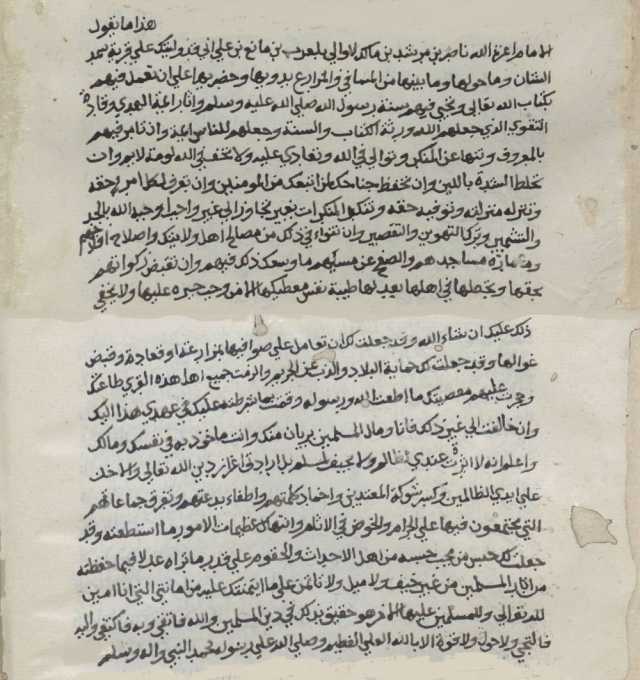 هذا ما يقول
الامام اعزه الله ناصر بن مرشد بن مالك لاوالي يلعرب بن مانع بن علي اني قد وليتك علي قرية سمد
الشان وما حولها وما بينهما من المسافي والمزارع بدوها وحضرها علي ان تعمل فيهم
بكتاب الله تعالي وتحيي فيهم سنة رسول الله صلي الله عليه وسلم واثار ائمة الهدي وقادة
التقوي الذي جعلهم الله ورثة الكتاب والسنة وجعلهم للناس ائمة وان تامر فيهم
بالمعروف وتنها عن المنكر وتوالي في الله وتعادي عليه ولا تخف في الله لومة لايم وان
تخلط الشدة باللين وان تخفظ جناحك لمن اتبعك من المومنين وان تعرف لكل امر حقه
وتنزله منزلته وتوفيه حقه وتنكر المنكرات بغير تجاوز الي غير واجب اوجبه الله بالجد
والتشمير وترك التهوين والتقصير وان تتواء في ذلك من مصالح اهل ولايتك واصلاح افلاجهم
وعمارة مساجدهم والصفح عن مسيهم ما وسعك ذلك فيهم وان تقبض زكواتهم
بحقها وتجعلها في اهلها بعد لها طيبة نفس معطيها الا من وجب جبره عليها ولا يخفي
ذلك عليك ان شاء الله وقد جعلت لك ان تعامل علي صوافيها بمزارعة او قعادة وقبض
غوالها وقد جعلت لك حماية البلاد والذب عن الحريم والزمت جميع اهل هذه القري طاعتك
وحجرت عليهم معصيتك ما اطعت الله ورسوله وقمت بما شرطته عليك في عهدي هذا اليك
وان خالفت الي غير ذلك فانا ومال المسلمين بريان منك وانت ماخوذ به في نفسك ومالك
واعلم انه لا اثرة عندي لظالم ولا لحيف لمسلم بل ارادتي اعزاز دين الله تعالي والاخذ
علي ايدي الظالمين وكسر شوكة المعتدين واخماد كلمتهم واطفاء بدعتهم وتفرق جماعاتهم
التي يجتمعون فيها علي الحرام والخوض في الاثام وانتهاك عظيمات الامور ما استطعته وقد
جعلت لك حبس من يجب حبسه من اهل الاحداث والحقوم علي قدر ما تراه عدلا فيما حفظته
من اثار المسلمين من غير حيف ولا ميل ولا تاتمن علي ما ايتمنتك عليه من امانتي التي انا امين
لله تعالي وللمسلمين عليها الا من هو حقيق بذلك في دين المسلمين والله فاتقي وبه فاكتفي واليه
فالتجي ولا حول ولا قوة الا بالله العلي العظيم وصلي الله علي رسوله محمد النبي واله وسلم